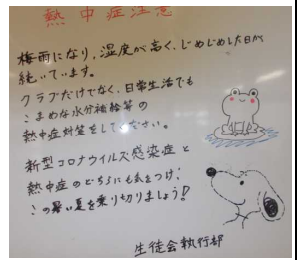 熱中症注意
梅雨になり、湿度が高く、じめじめした日が
続いています。
クラブだけでなく、日常生活でも
こまめな水分補給等の
熱中症対策をしてください。
新型コロナウイルス感染症と
熱中症のどちらにも気をつけ、
この暑い夏を乗り切りましょう!
生徒会執行部